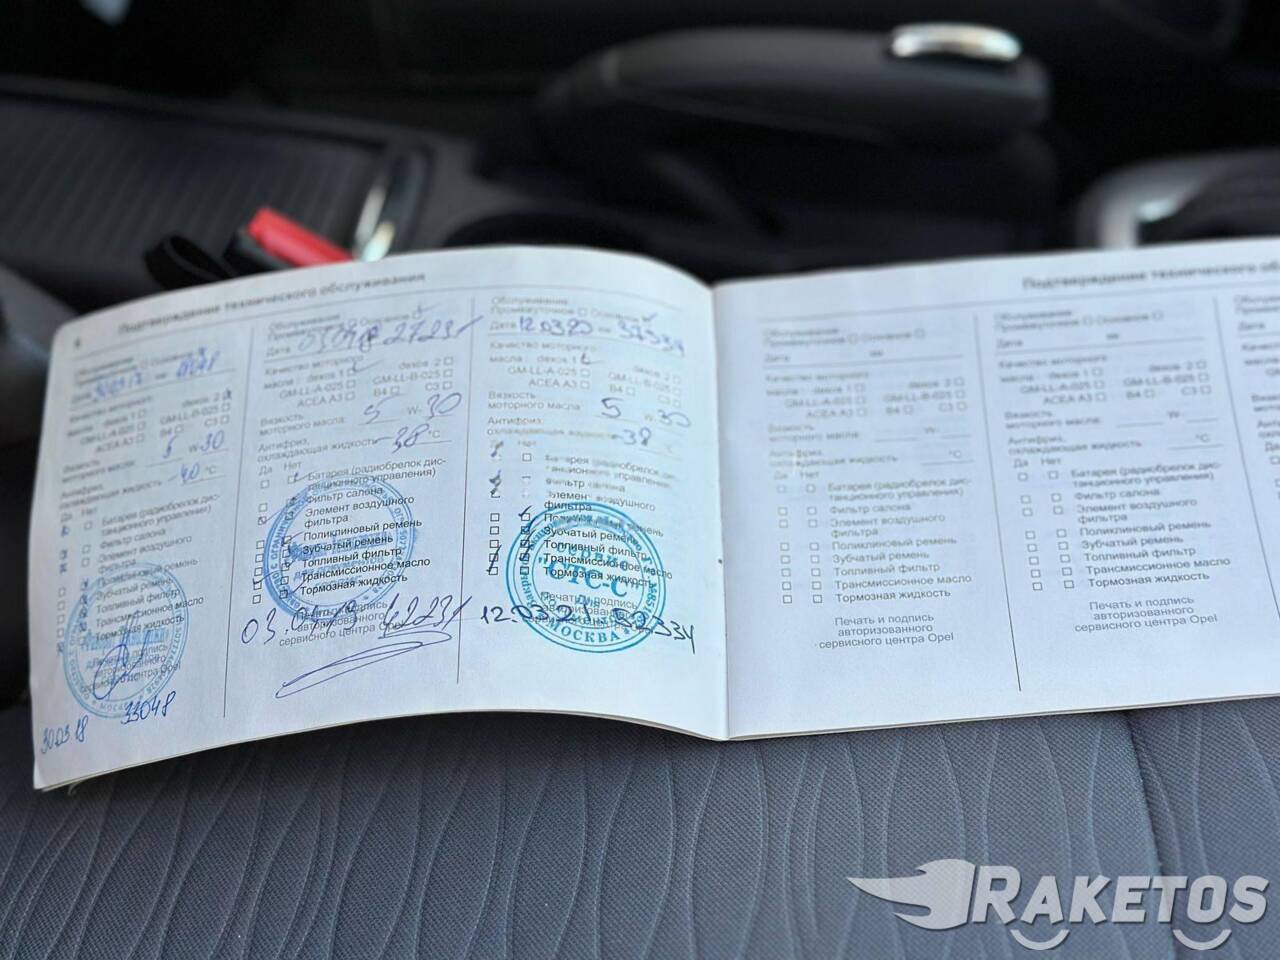 Подтверждение технического обслуживания
Обслуживание
Промежуточное Основное
Дата км
Качество моторного
масла: dexos 1 dexos 2
GM-LL-A-025 GM-LL-B-025
ACEA A3 B4 C3
Вязкость
моторного масла: 5 W-30
Антифриз,
охлаждающая жидкость -40 °C
Да Нет
Батарея (радиобрелок дис-
танционного управления)
Фильтр салона
Элемент воздушного
фильтра
Поликлиновый ремень
Зубчатый ремень
Топливный фильтр
Трансмиссионное масло
Тормозная жидкость
Печать и подпись
авторизованного
сервисного центра Opel
30.03.18 33048
Обслуживание
Промежуточное Основное
Дата
Качество моторного
масла: dexos 1 dexos 2
GM-LL-A-025 GM-LL-B-025
ACEA A3 B4 C3
Вязкость
моторного масла: 5 W-30
Антифриз,
охлаждающая жидкость -38 °C
Да Нет
Батарея (радиобрелок дис-
танционного управления)
Фильтр салона
Элемент воздушного
фильтра
Поликлиновый ремень
Зубчатый ремень
Топливный фильтр
Трансмиссионное масло
Тормозная жидкость
Печать и подпись
авторизованного
сервисного центра Opel
Обслуживание
Промежуточное Основное
Дата 12.03.20 км 52334
Качество моторного
масла: dexos 1 dexos 2
GM-LL-A-025 GM-LL-B-025
ACEA A3 B4 C3
Вязкость
моторного масла: 5 W-30
Антифриз,
охлаждающая жидкость -38 °C
Да Нет
Батарея (радиобрелок дис-
танционного управления)
Фильтр салона
Элемент воздушного
фильтра
Поликлиновый ремень
Зубчатый ремень
Топливный фильтр
Трансмиссионное масло
Тормозная жидкость
Печать и подпись
"СТС-С"
МОСКВА
Подтверждение технического
Обслуживание
Промежуточное Основное
Дата км
Качество моторного
масла: dexos 1 dexos 2
GM-LL-A-025 GM-LL-B-025
ACEA A3 B4 C3
Вязкость
моторного масла: W-
Антифриз,
охлаждающая жидкость °C
Да Нет
Батарея (радиобрелок дис-
танционного управления)
Фильтр салона
Элемент воздушного
фильтра
Поликлиновый ремень
Зубчатый ремень
Топливный фильтр
Трансмиссионное масло
Тормозная жидкость
Печать и подпись
авторизованного
сервисного центра Opel
Обслуживание
Промежуточное Основное
Дата км
Качество моторного
масла: dexos 1 dexos 2
GM-LL-A-025 GM-LL-B-025
ACEA A3 B4 C3
Вязкость
моторного масла: W-
Антифриз,
охлаждающая жидкость °C
Да Нет
Батарея (радиобрелок дис-
танционного управления)
Фильтр салона
Элемент воздушного
фильтра
Поликлиновый ремень
Зубчатый ремень
Топливный фильтр
Трансмиссионное масло
Тормозная жидкость
Печать и подпись
авторизованного
сервисного центра Opel
RAKETOS